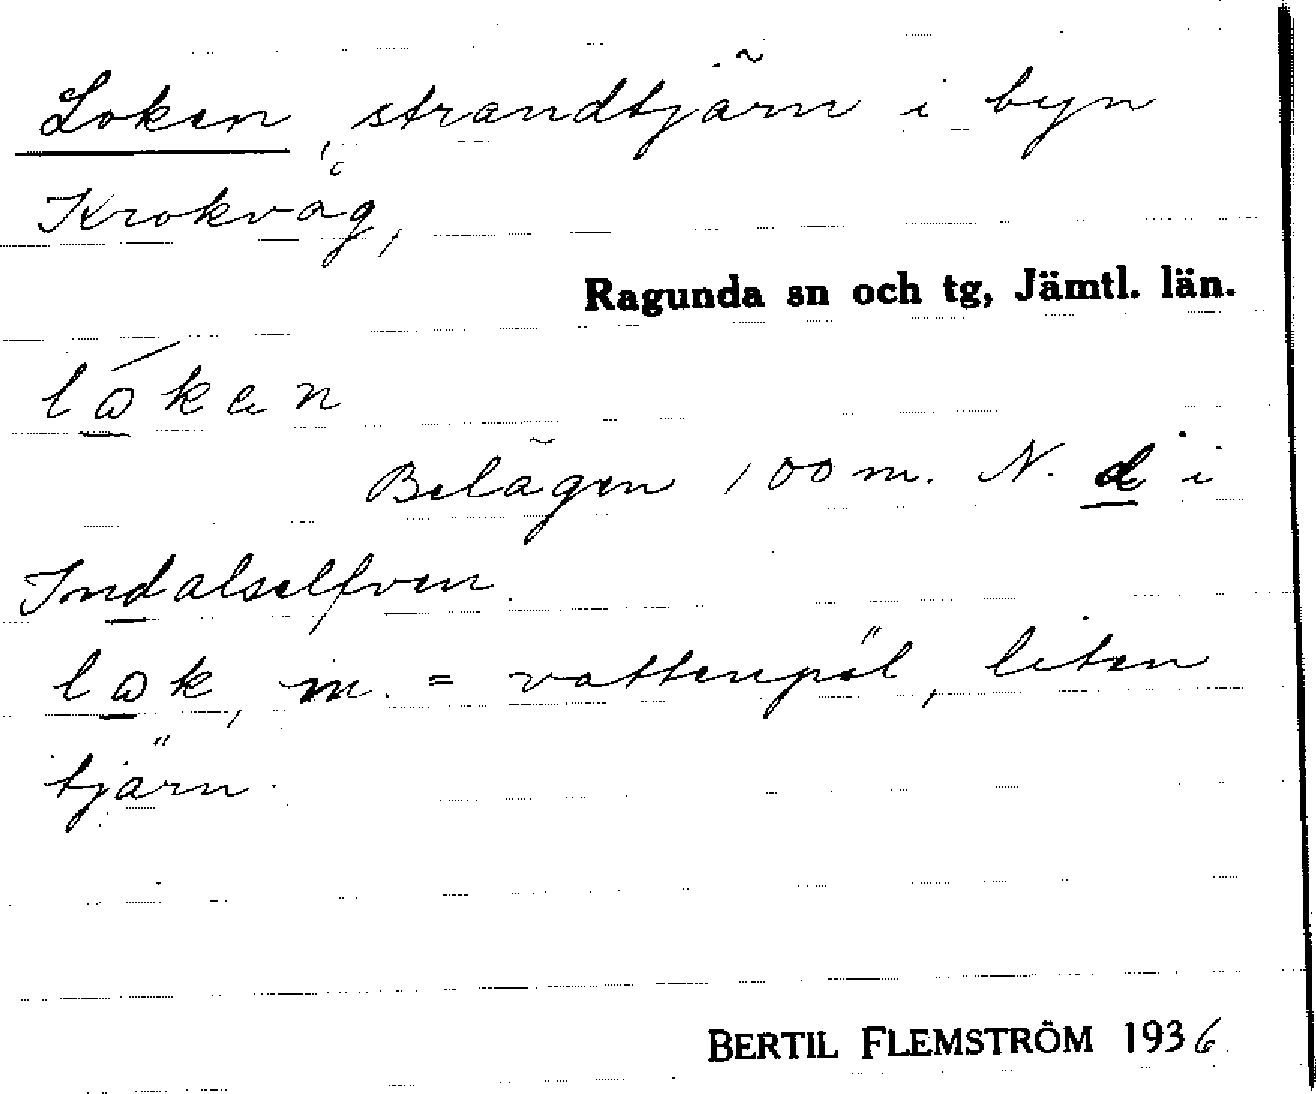 Loken, strandtjärn i byn
Krokvåg,
Ragunda sn och tg, Jämtl. län.
Belägen 100 m. N. d i
Indalselfven.
m. = vattenpöl, liten
tjärn.
BERTIL FLEMSTRÖM 1936